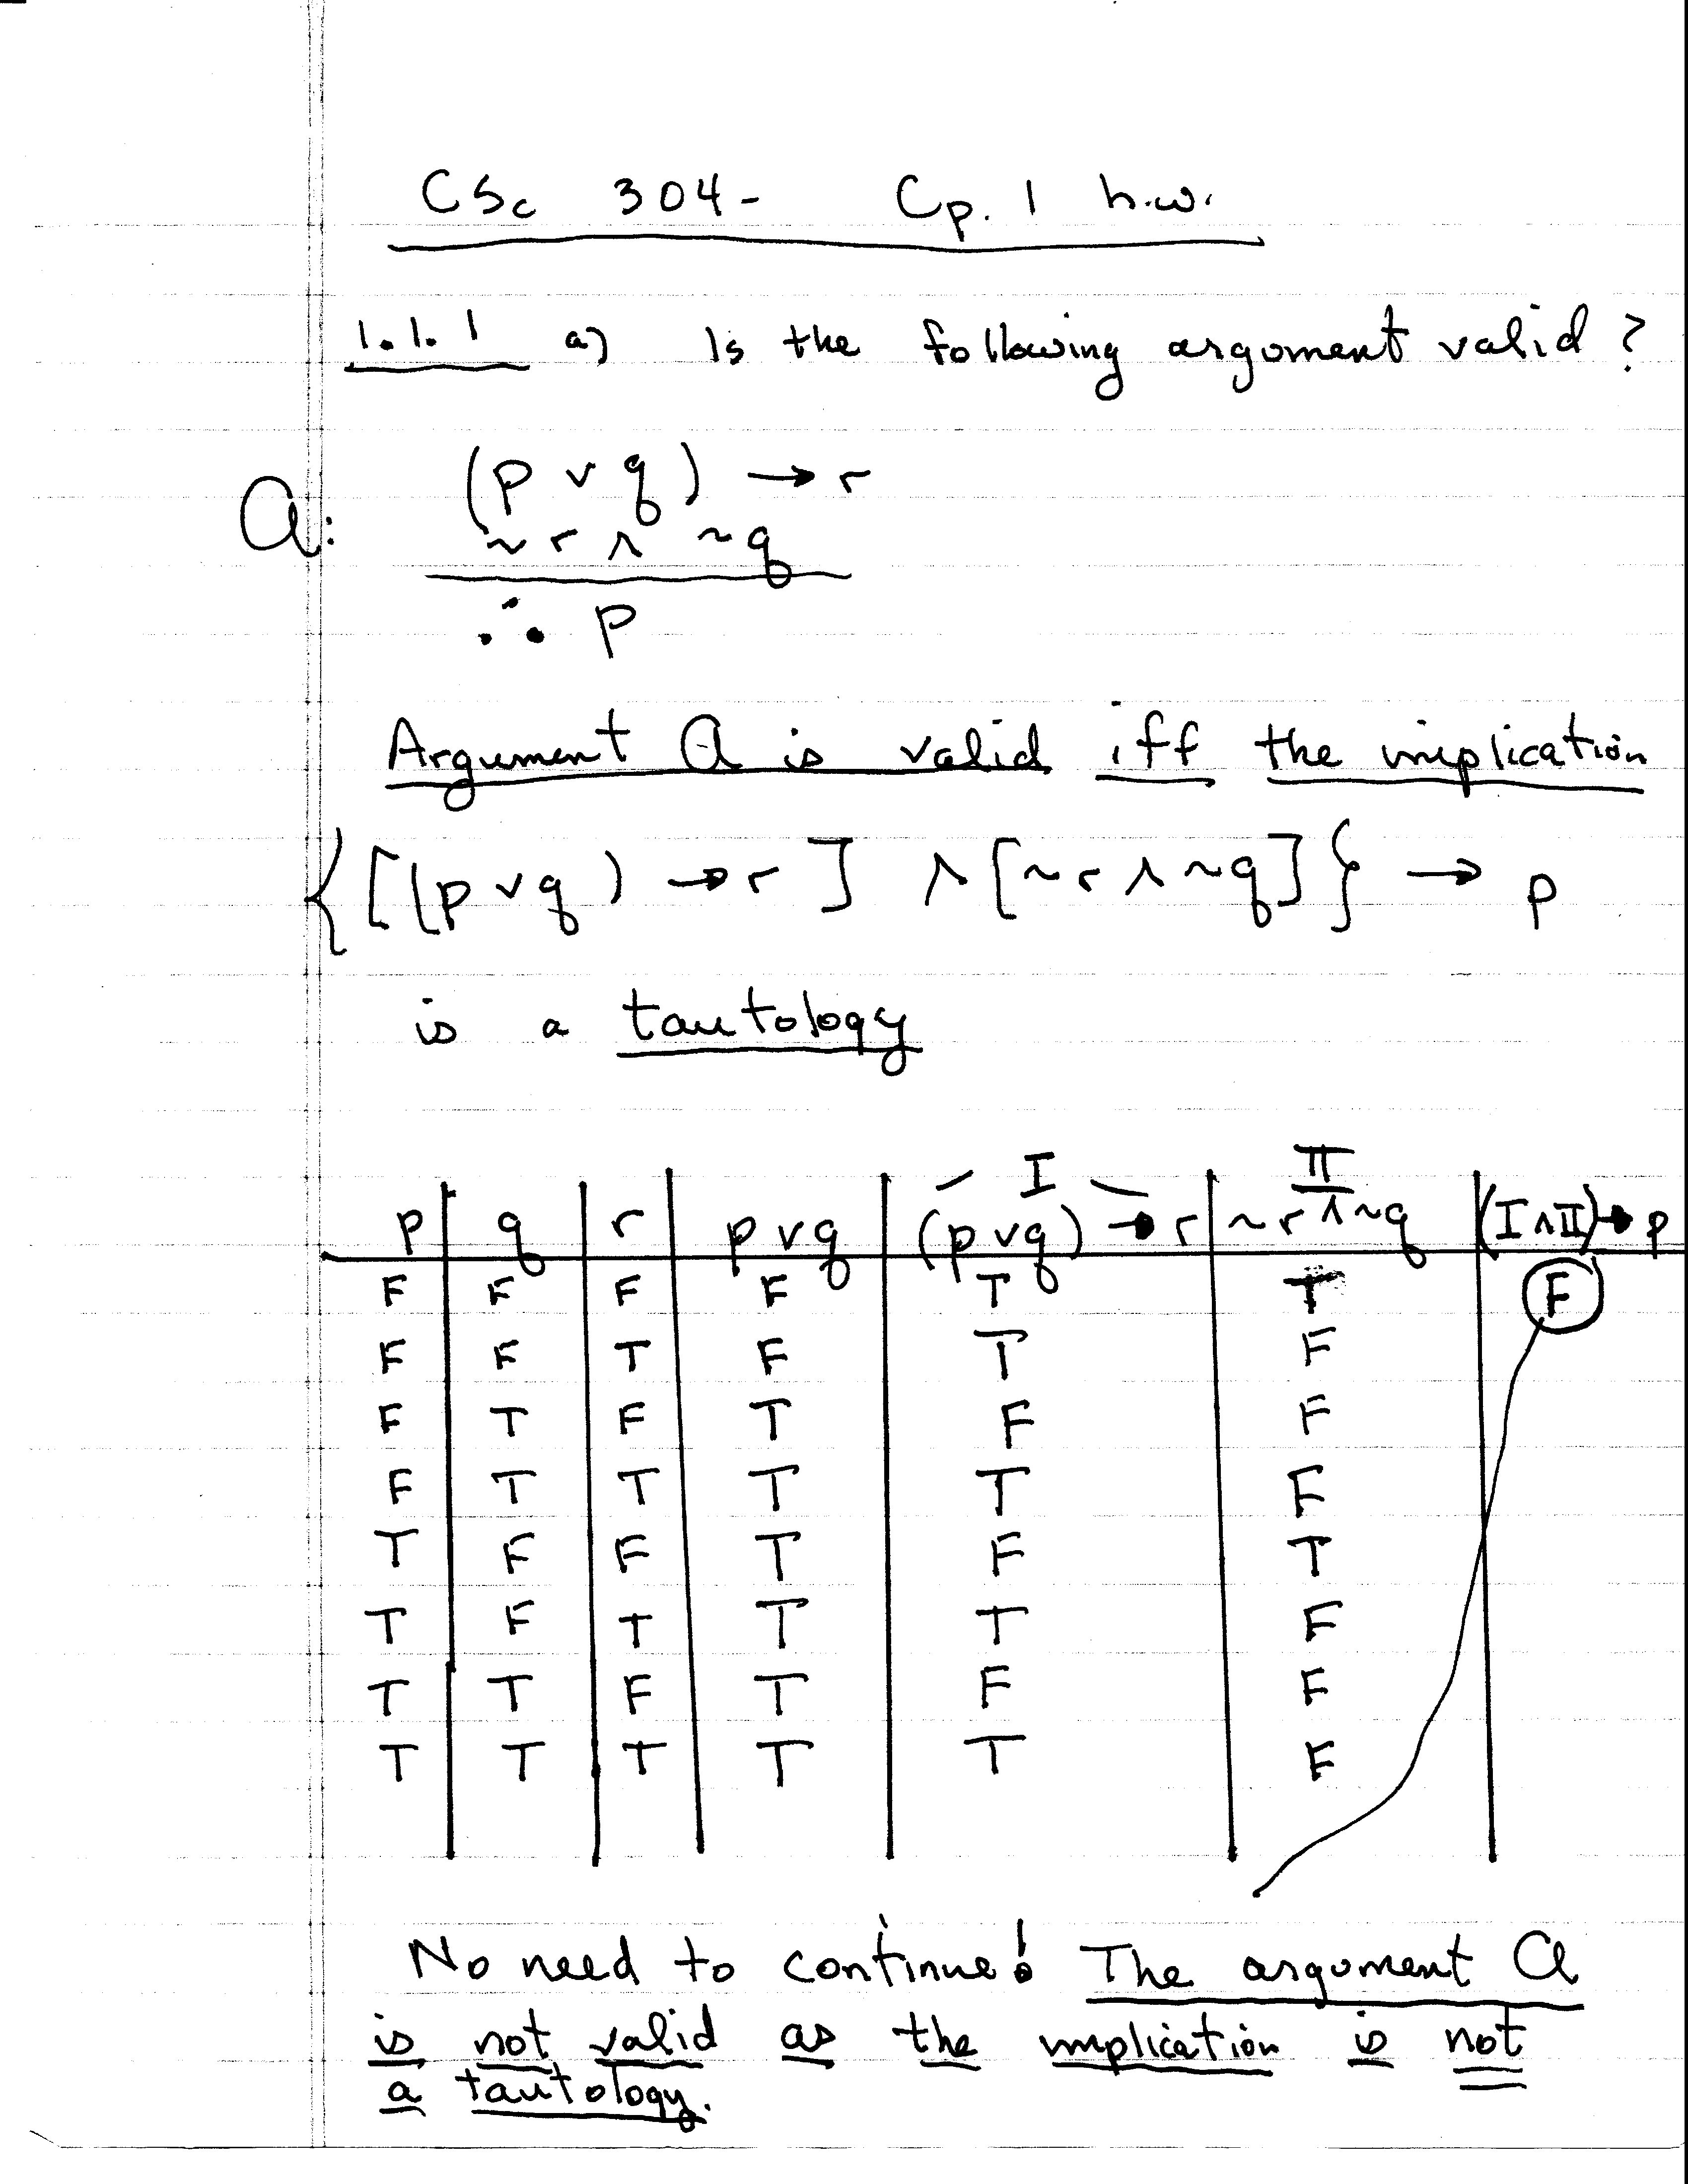 CSc 304- Cp. 1 h.w.
1.1.1 a) Is the following argument valid?
(p ∨ q) → r
a: ~r ∧ ~q
∴ p
Argument a is valid iff the implication
{[(p ∨ q) → r] ∧ [~r ∧ ~q]} → p
is a tautology
I II
p q r p ∨ q (p ∨ q) → r ~r ∧ ~q (I ∧ II) → p
F F F F T T F
F F T F T F
F T F T F F
F T T T T F
T F F T F T
T F T T T F
T T F T F F
T T T T T F
No need to continue! The argument a
is not valid as the implication is not
a tautology.